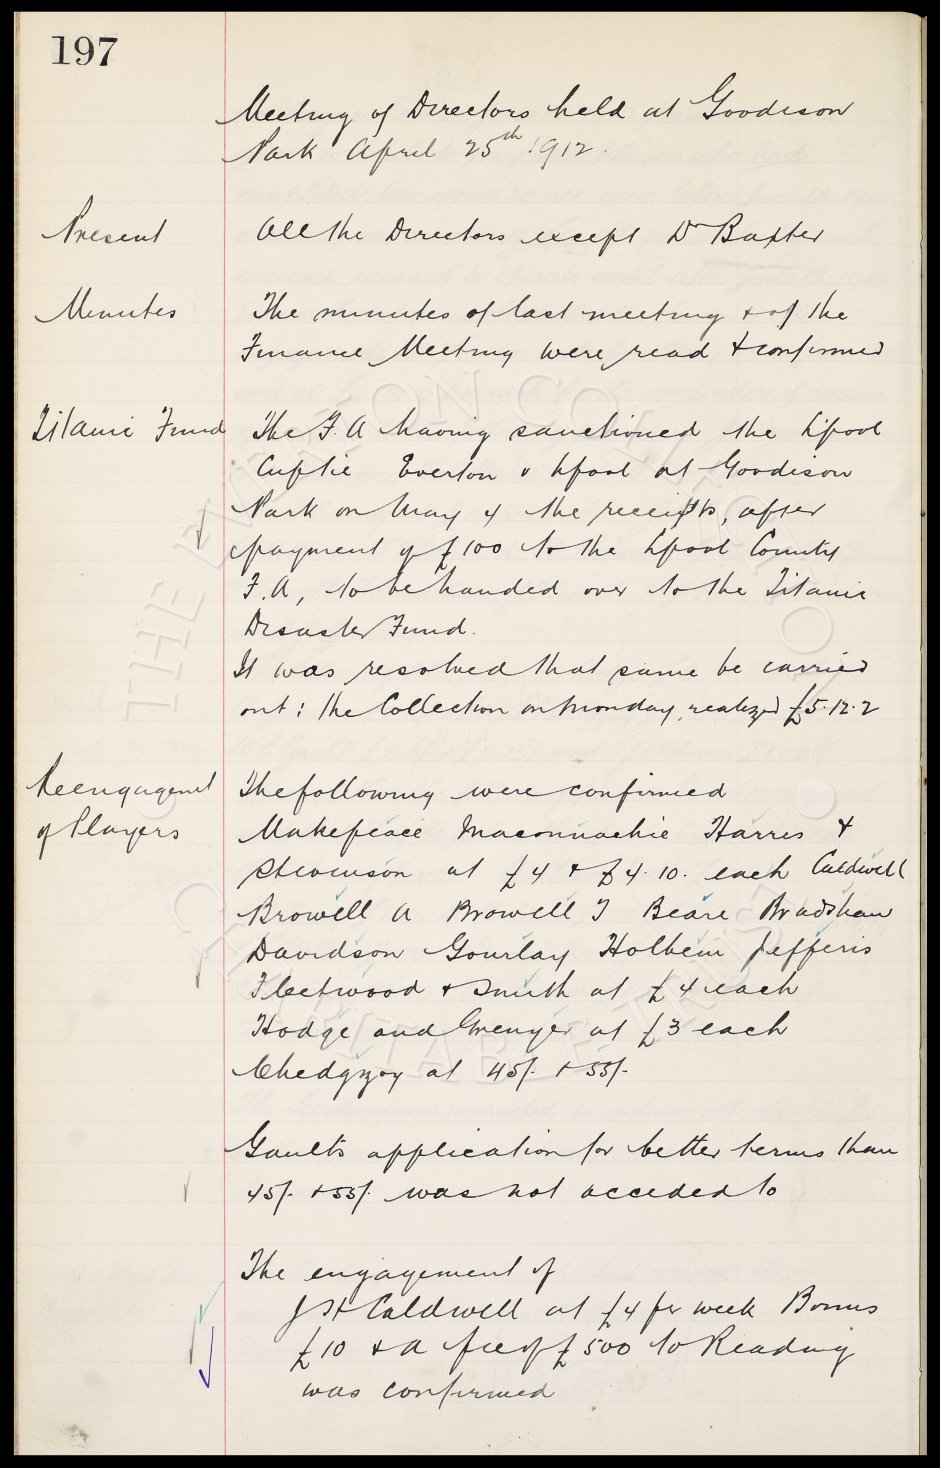 197
Meeting of Directors held at Goodison
Park April 25th 1912.
Present
All the Directors except Dr Baxter
Minutes
The minutes of last meeting & of the
Finance Meeting were read & confirmed
Titanic Fund
The F.A having sanctioned the Lpool
Cuptie Everton v Lpool at Goodison
Park on May 4 the receipts, after
payment of £100 to the Lpool County
F.A, to be handed over to the Titanic
Disaster Fund.
It was resolved that same be carried
out: the Collection on Monday, realized £5.12.2
Reengagement
of Players
The following were confirmed
Makepeace Maconnachie Harris &
Stevenson at £4 & £4.10. each Caldwell
Browell A Browell T Beare Bradshaw
Davidson Gourlay Holbem Jefferis
Fleetwood & Smith at £4 each
Hodge and Grenyer at £3 each
Chedgzoy at 45/- & 55/-
Gaults application for better terms than
45/- & 55/- was not acceded to
The engagement of
J H Caldwell at £4 per week Bonus
£10 & a fee of £500 to Reading
was confirmed